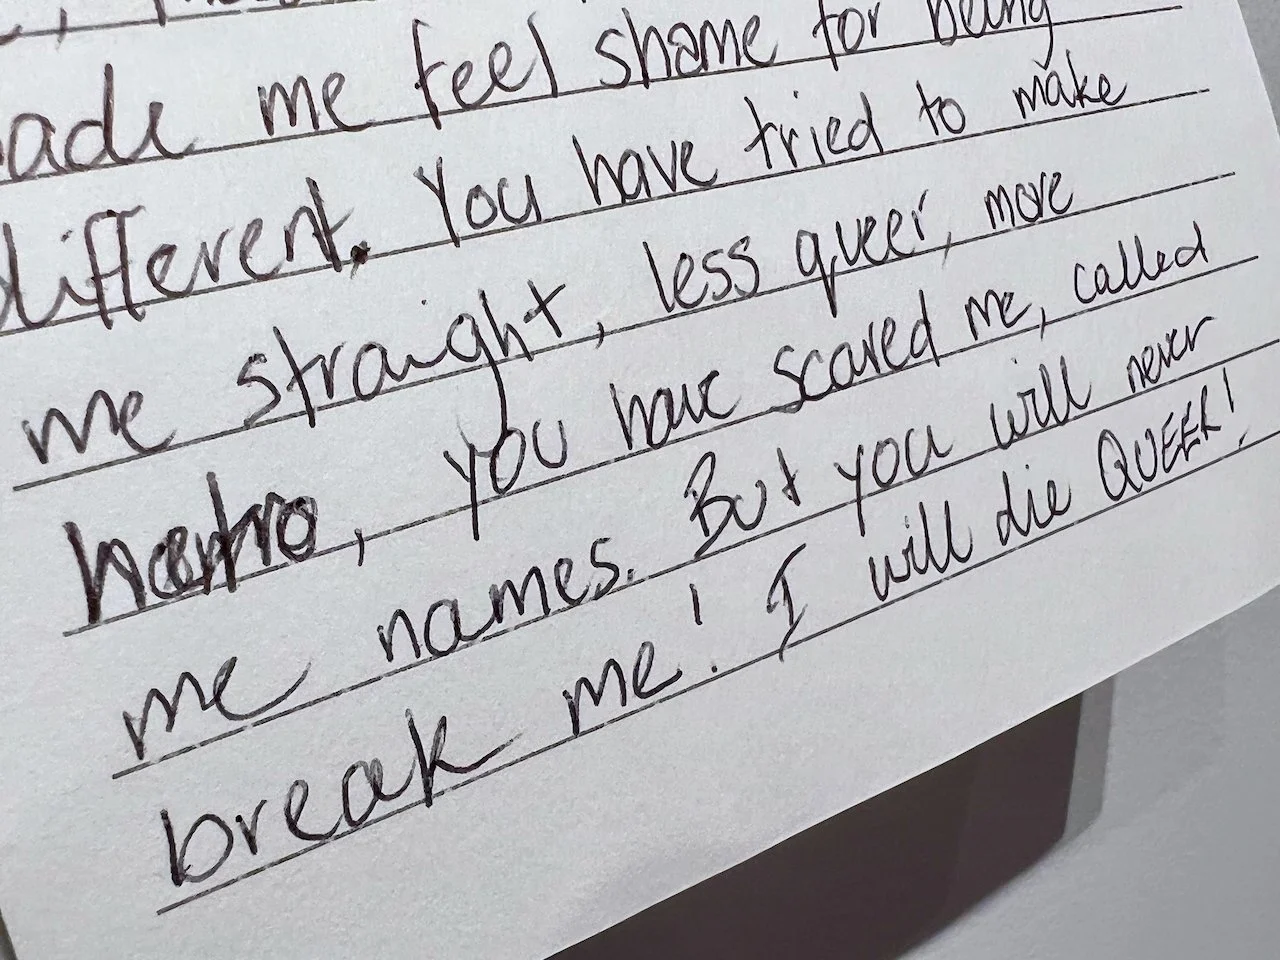 ade me feel shame for being
different. You have tried to make
me straight, less queer, more
hetro, you have scared me, called
me names. But you will never
break me! I will die QUEER!